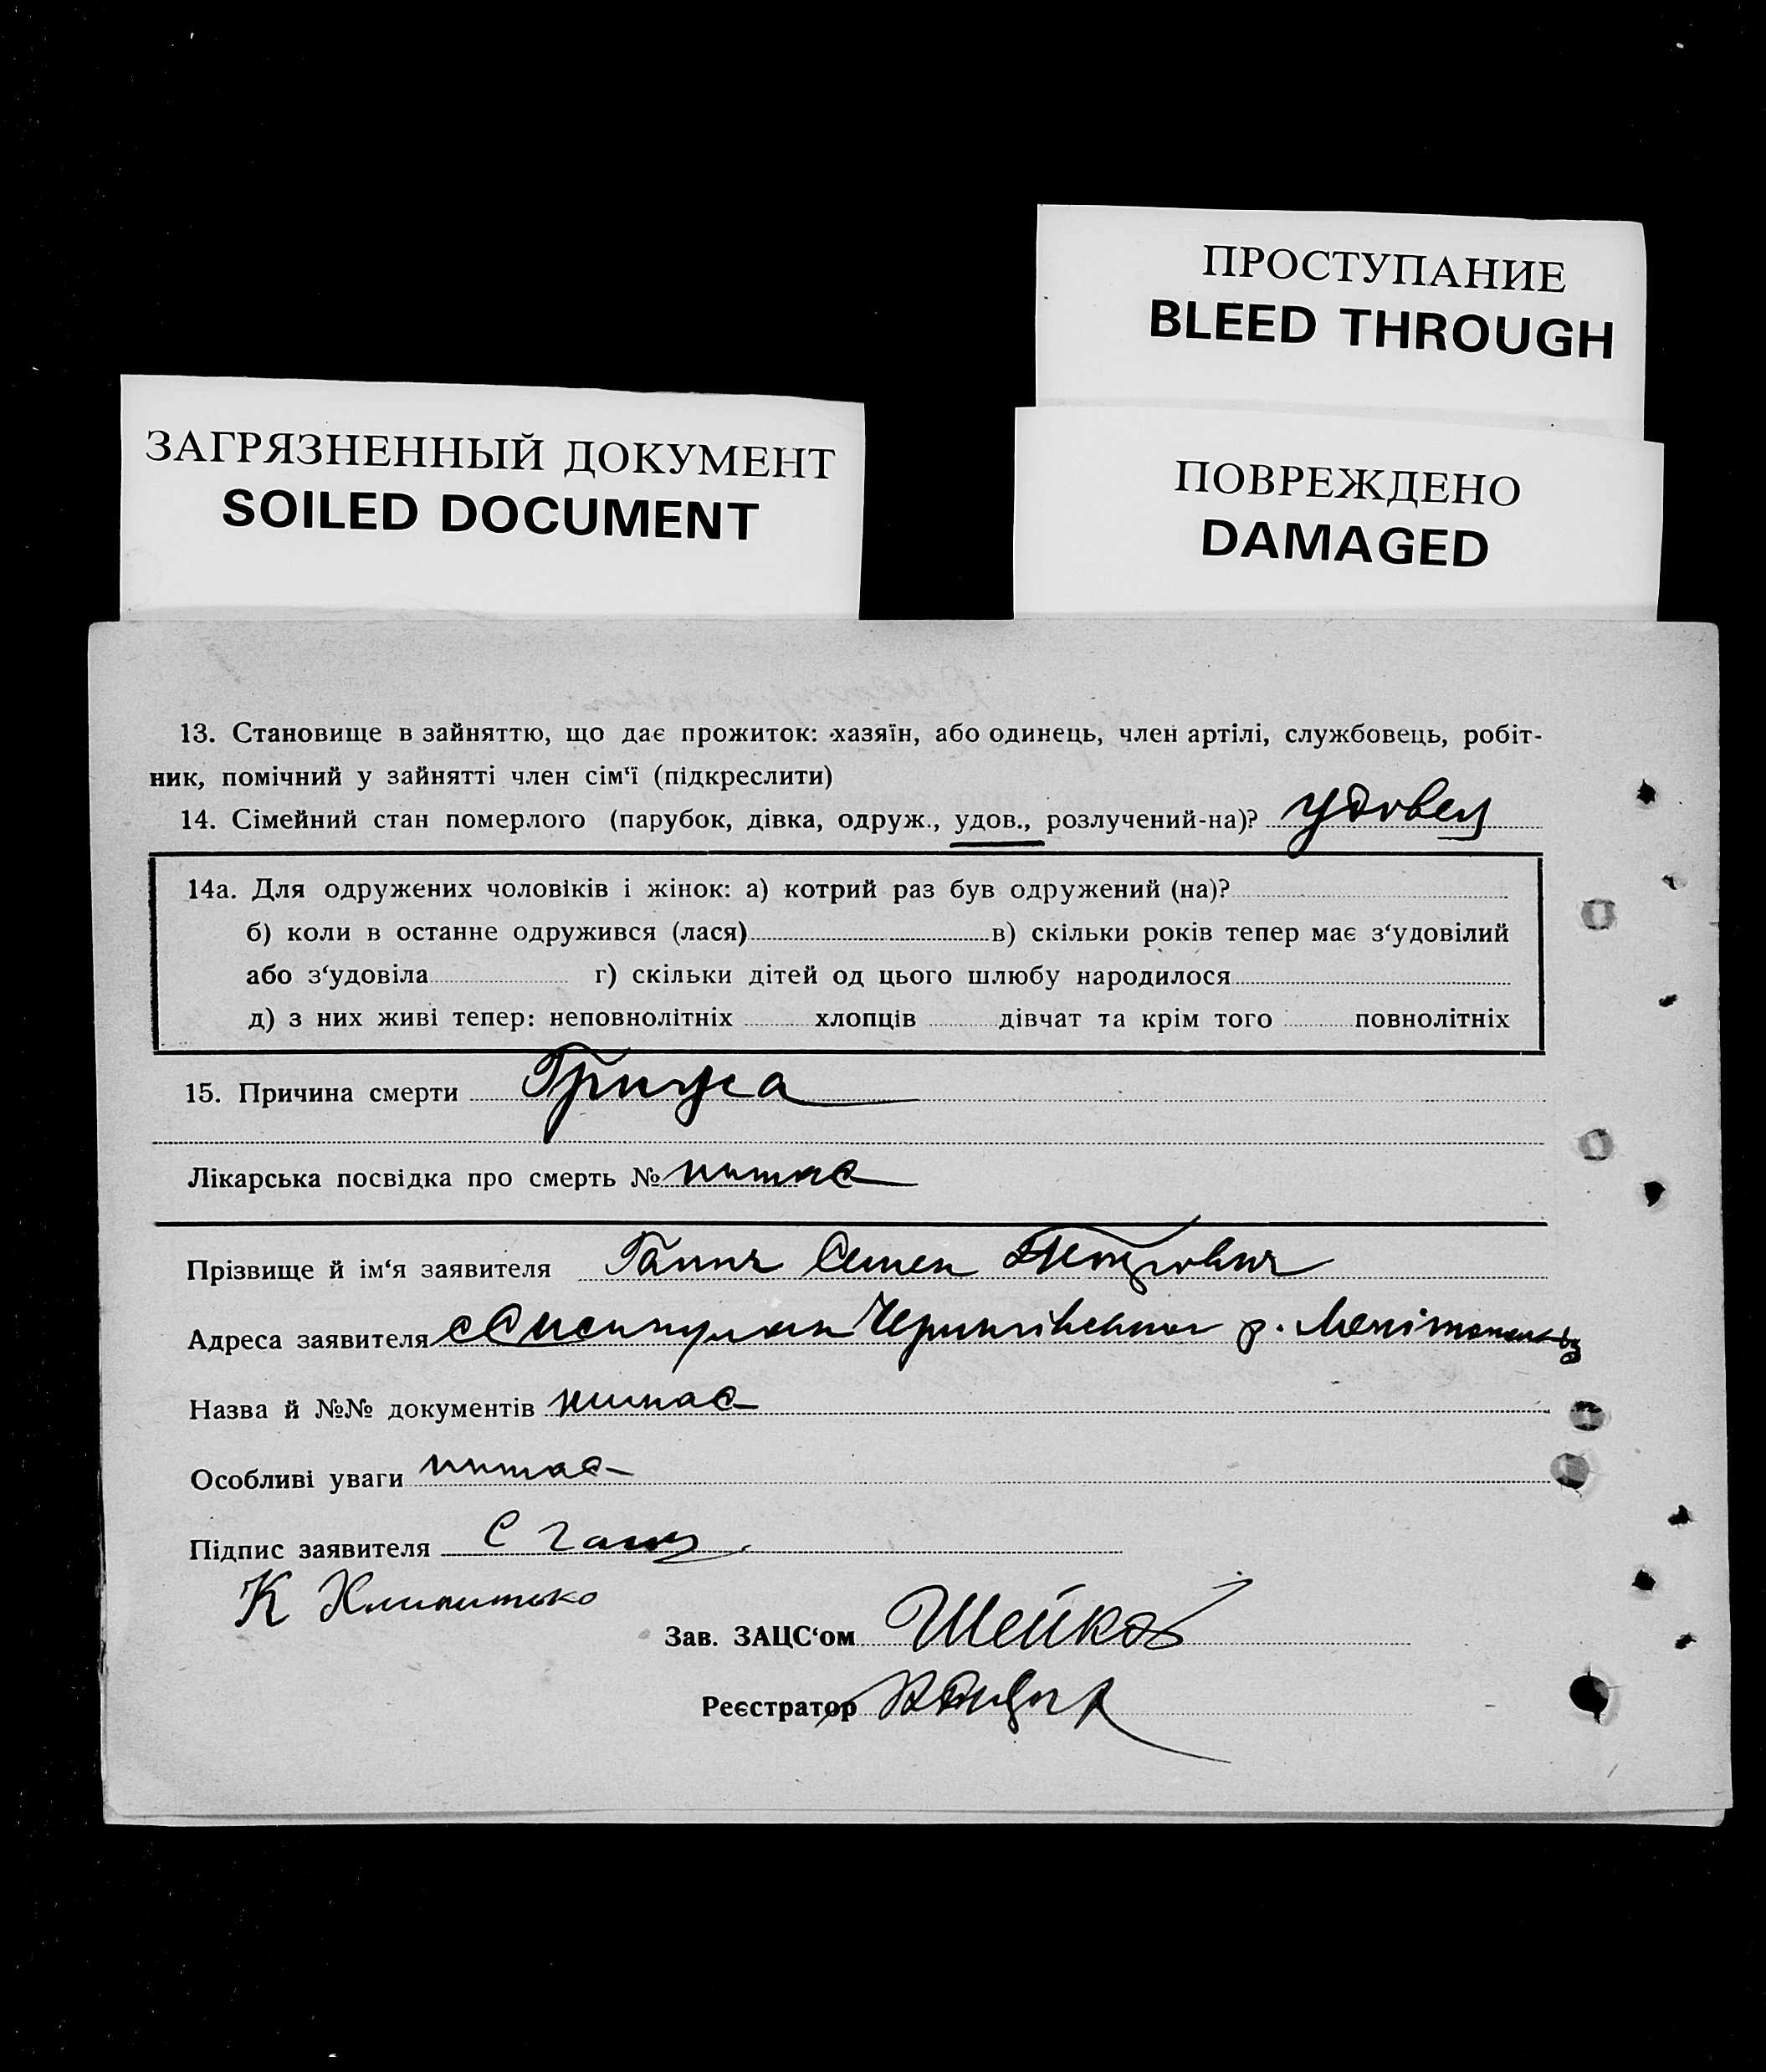 ПРОСТУПАНИЕ
BLEED THROUGH
ЗАГРЯЗНЕННЫЙ ДОКУМЕНТ
SOILED DOCUMENT
ПОВРЕЖДЕНО
DAMAGED
13. Становище в зайняттю, що дає прожиток: хазяїн, або одинець, член артілі, службовець, робіт-
ник, помічний у зайнятті член сім‘ї (підкреслити)
14. Сімейний стан померлого (парубок, дівка, одруж., удов., розлучений-на)? удовец
14а. Для одружених чоловіків і жінок: а) котрий раз був одружений (на)?
б) коли в останне одружився (лася) в) скільки років тепер має з‘удовілий
або з‘удовіла г) скільки дітей од цього шлюбу народилося
д) з них живі тепер: неповнолітніх хлопців дівчат та крім того повнолітніх
15. Причина смерти Грижа
Лікарська посвідка про смерть № нимае
Прізвище й ім‘я заявителя Ганич Семен Петрович
Адреса заявителя Чернигівського р.
Назва й №№ документів нимае
Особливі уваги нимае
Підпис заявителя С
К
Зав. ЗАЦС‘ом Шейко
Реєстратор